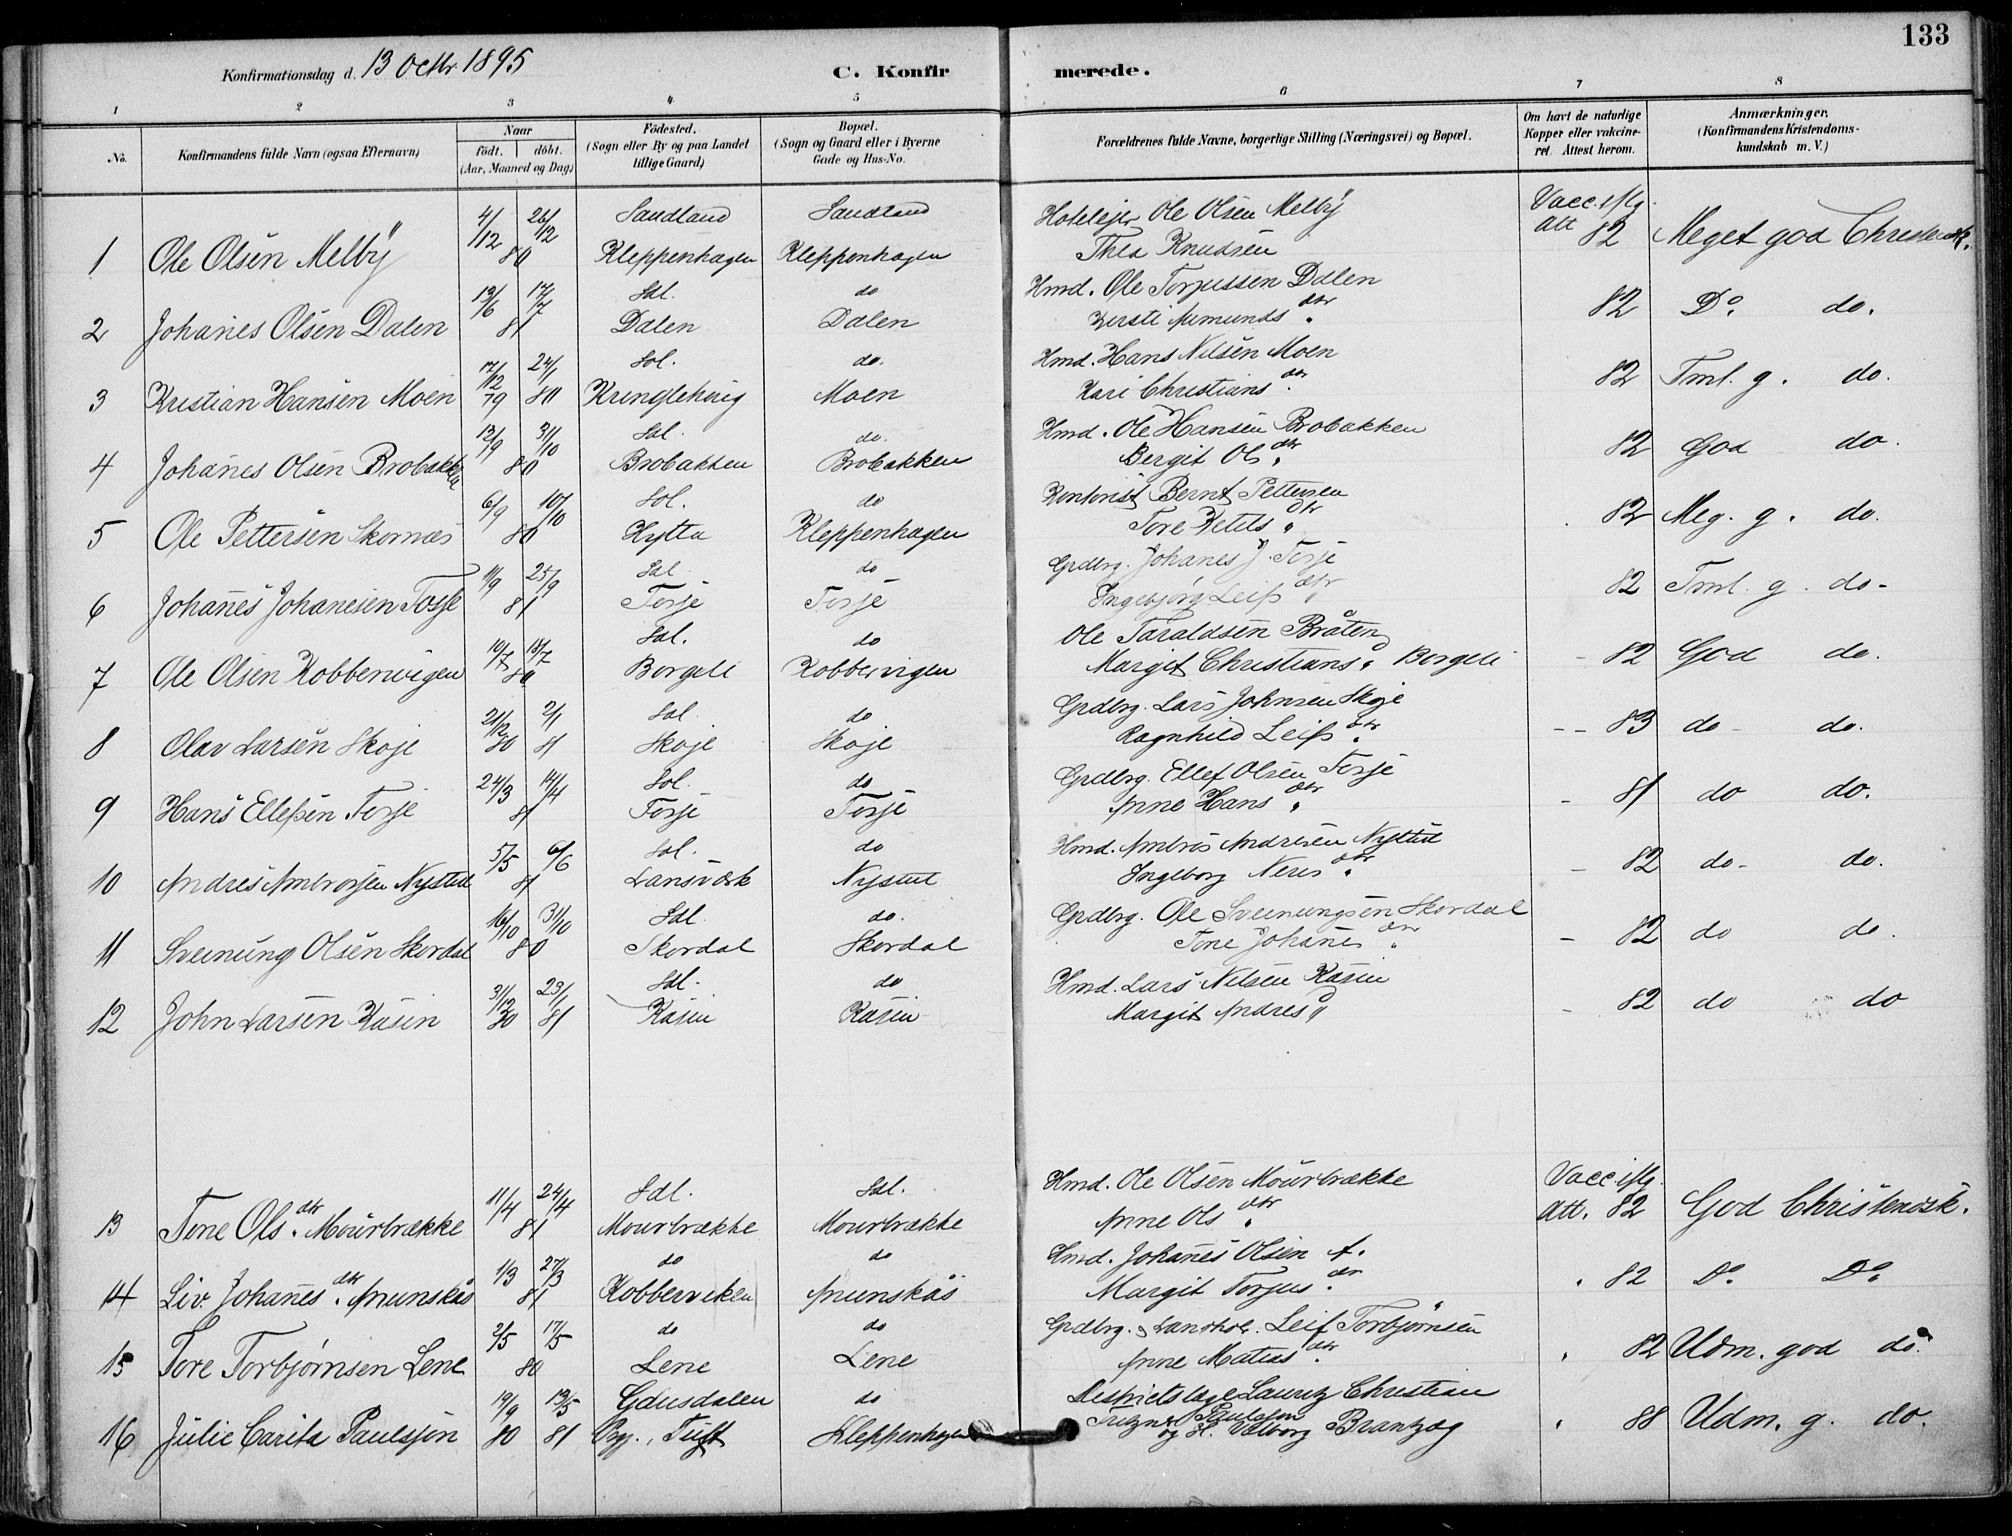 133
Konfirmationsdag d. 13 Octbr 1895
C. Konfirmerede.
1 2 3 4 5 6 7 8
No. Konfirmandens fulde Navn (ogsaa Efternavn) Naar födt. döbt. (Aar, Maaned og Dag) Födested. (Sogn eller By og paa Landet tillige Gaard) Bopæl. (Sogn og Gaard eller i Byerne Gade og Hus-No. Forældrenes fulde Navne, borgerlige Stilling (Næringsvei) og Bopæl. Om havt de naturlige Kopper eller vakcineret. Attest herom. Anmærkninger. (Konfirmandens Kristendomskundskab m. V.)
4/12 26/12 Saudland Saudland Hotelejer Ole Olsen Melby Vacc. iflg.
1 Ole Olsen Melby 80 Kleppenhagen Kleppenhagen Thea Knudsen Att 82 Meget god Christendsk.
13/6 17/7 Sdl. do Hmd. Ole Torjussen Dalen
2 Johanes Olsen Dalen 81 Dalen Dalen Kersti Aumunds dtr. 82 Do. do.
17/12 24/1 Sdl. do. Hmd. Hans Nilsen Moen
3 Kristian Hansen Moen 79 80 Krunglehoug Moen Kari Christians dtr. 82 Tml. g. do.
12/9 31/10 Sdl. do. Hmd. Ole Hansen Brobakken
4 Johanes Olsen Brobakken 80 Brobakken Brobakken Bergit Ols dtr. 82 God do.
6/9 10/10 Sdl. do Kontorist Bernt Pettersen
5 Ole Pettersen Skornæs 80 Hytta Kleppenhagen Tore Ketils dtr. 82 Meg. g. do.
11/9 25/9 Sdl. do Grdbrg. Johanes J. Tosje
6 Johanes Johanesen Tosje 81 Tosje Tosje Ingebjørg Leifs dtr. 82 Tml. g. do-
10/7 18/7 Sdl. do Ole Taraldsen Bråten
7 Ole Olsen Kobbervigen 80 Borgeli Kobbervigen Margit Christians d. Borgeli - 82 God do.
21/12 2/1 Sdl. do Grdbrg. Lars Johnsen Skoje
8 Olav Larsen Skoje 80 81 Skoje Skoje Ragnhild Leifs dtr. -- 83 do - do.
24/3 14/4 Sdl. do Grdbrg. Ellef Olsen Tosje
9 Hans Ellefsen Tosje 81 Tosje Tosje Anne Hans dtr. - 81 do do.
5/5 6/6 Sdl. do Hmd. Ambros Andresen Nystad
10 Andres Ambrosen Nystad 81 Lansværk Nystul Ingeborg Neres dtr. - 82 do- do.
16/10 31/10 Sdl. do. Grdbrg. Ole Sveinungsen Skordal
11 Sveinung Olsen Skordal 80 Skordal Skordal Tone Johanes dtr. - 82 do do.
31/12 23/1 Sdl. do Hmd. Lars Nilsen Kåsin
12 John Larsen Kåsin 80 81 Kåsin Kåsin Margit Andres d. - 82 do do
11/4 24/4 Sdl. Sdl. Hmd. Ole Olsen Mourbrække Vacc. iflg.
13 Tone Ols dtr. Mourbrække 81 Mourbrække Mourbrække Anne Ols dtr. Att. 82 God Christendsk.
1/3 27/3 do do Hmd. Johanes Olsen A.
14 Liv Johanes dtr. Amunskås 81 Kobberviken Amunskås Margit Torjus dtr. . 82 Do. Do.
2/5 17/5 do do Grdbrg. Leif Torbjørnsen
15 Tore Torbjørnsen Lene 80 Lene Lene Anne Matias dtr. . 82 Udm. god do.
19/9 13/5 Gausdalen do Distriktslæge Lauritz Christian
16 Julie Carita Paulsson 80 81 Pgj., Tuft Kleppenhagen Paulsson og H. Valborg Brantzæg . 88 Udm. g. do.